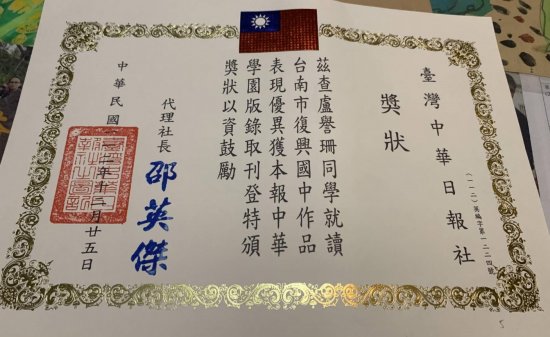 臺灣中華日報社
（一一二）英編字第一二二四號
獎狀
茲查盧譽珊同學就讀
台南市復興國中作品
表現優異獲本報中華
學園版錄取刊登特頒
獎狀以資鼓勵
代理社長 邵英傑
中華民國一一二年十二月廿五日
5